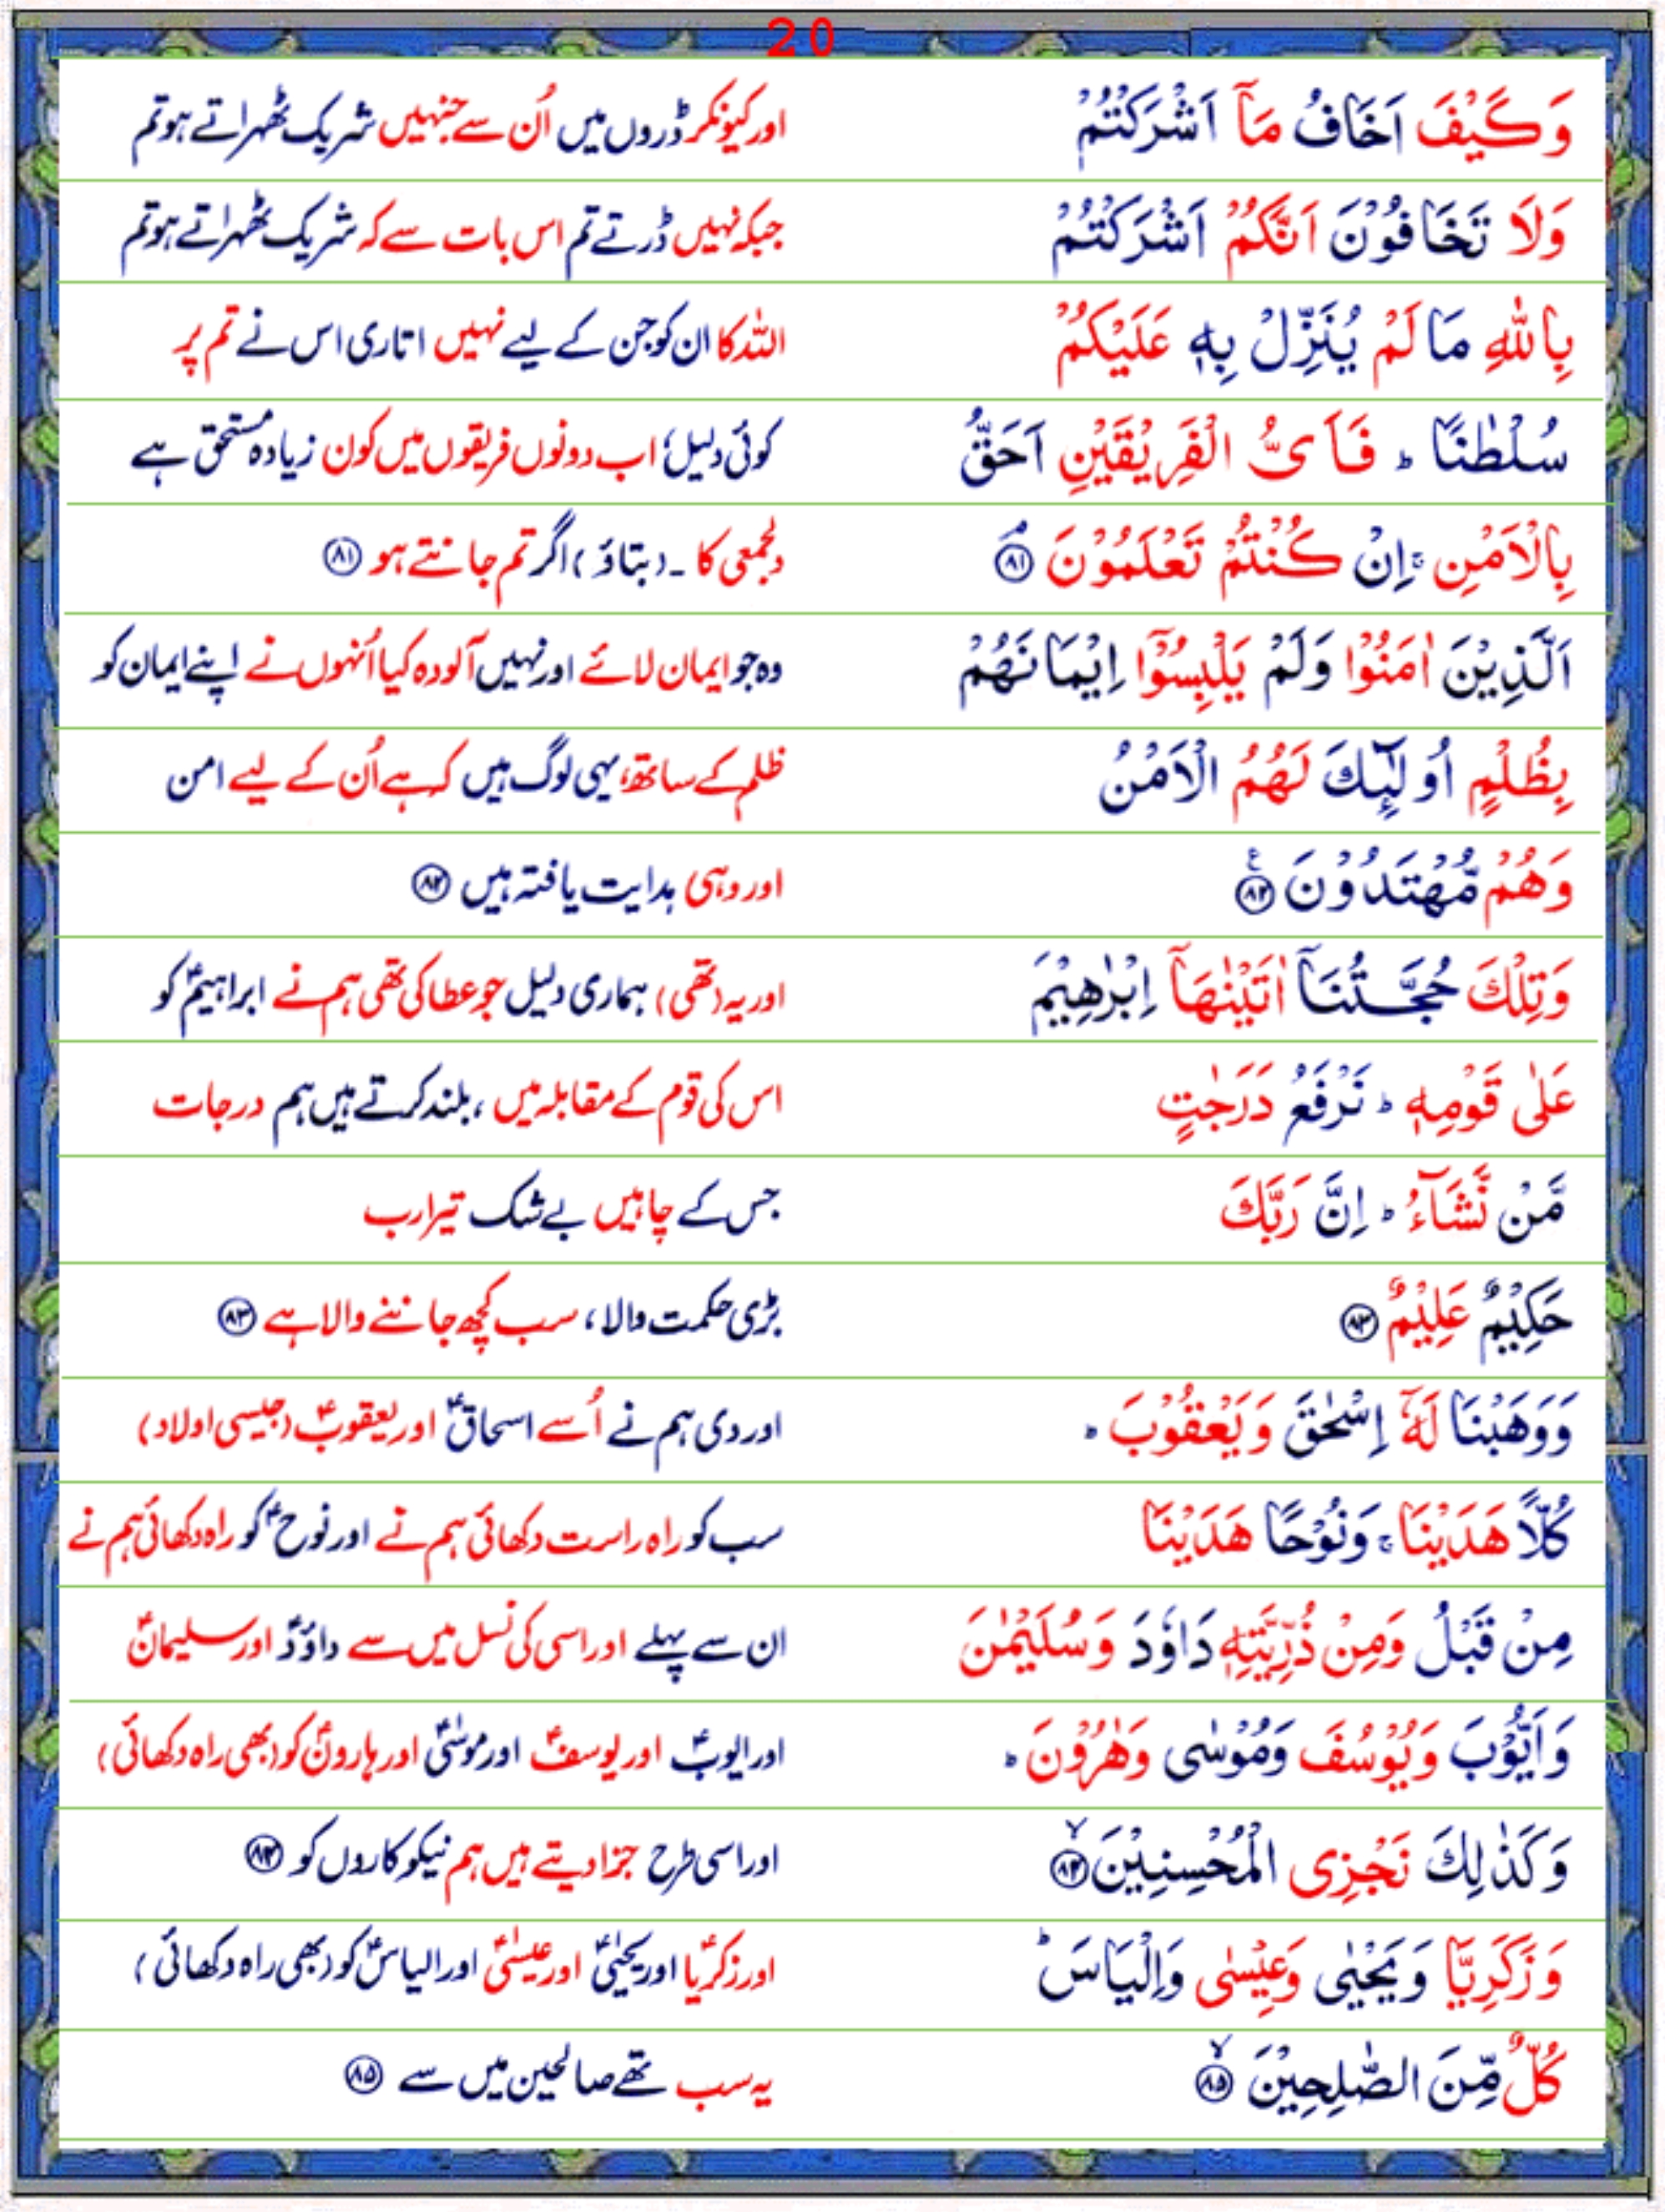 20
وَكَيْفَ اَخَافُ مَآ اَشْرَكْتُمْ اور کیونکر ڈروں میں اُن سے جنہیں شریک ٹھہراتے ہو تم
وَلَا تَخَافُوْنَ اَنَّكُمْ اَشْرَكْتُمْ جبکہ نہیں ڈرتے تم اس بات سے کہ شریک ٹھہراتے ہو تم
بِاللّٰهِ مَا لَمْ يُنَزِّلْ بِهٖ عَلَيْكُمْ اللہ کا ان کو جن کے لیے نہیں اتاری اس نے تم پر
سُلْطٰنًا ؕ فَاَىُّ الْفَرِيْقَيْنِ اَحَقُّ کوئی دلیل، اب دونوں فریقوں میں کون زیادہ مستحق ہے
بِالْاَمْنِ ۚ اِنْ كُنْتُمْ تَعْلَمُوْنَ ۘ‏﴿۸۱﴾ دلجمعی کا ۔ (بتاؤ) اگر تم جانتے ہو ﴿۸۱﴾
اَلَّذِيْنَ اٰمَنُوْا وَلَمْ يَلْبِسُوْۤا اِيْمَانَهُمْ وہ جو ایمان لائے اور نہیں آلودہ کیا اُنہوں نے اپنے ایمان کو
بِظُلْمٍ اُولٰٓئِكَ لَهُمُ الْاَمْنُ ظلم کے ساتھ، یہی لوگ ہیں کہ ہے اُن کے لیے امن
وَهُمْ مُّهْتَدُوْنَ ﴿۸۲﴾ ع اور وہی ہدایت یافتہ ہیں ﴿۸۲﴾
وَتِلْكَ حُجَّتُنَآ اٰتَيْنٰهَآ اِبْرٰهِيْمَ اور یہ (تھی) ہماری دلیل جو عطا کی تھی ہم نے ابراہیمؑ کو
عَلٰى قَوْمِهٖ ؕ نَرْفَعُ دَرَجٰتٍ اس کی قوم کے مقابلہ میں ، بلند کرتے ہیں ہم درجات
مَّنْ نَّشَآءُ ؕ اِنَّ رَبَّكَ جس کے چاہیں بے شک تیرا رب
حَكِيْمٌ عَلِيْمٌ ﴿۸۳﴾ بڑی حکمت والا ، سب کچھ جاننے والا ہے ﴿۸۳﴾
وَوَهَبْنَا لَهٗۤ اِسْحٰقَ وَيَعْقُوْبَ ؕ اور دی ہم نے اُسے اسحاقؑ اور یعقوبؑ (جیسی اولاد)
كُلًّا هَدَيْنَا ۚ وَنُوْحًا هَدَيْنَا سب کو راہ راست دکھائی ہم نے اور نوحؑ کو راہ دکھائی ہم نے
مِنْ قَبْلُ وَمِنْ ذُرِّيَّتِهٖ دَاوٗدَ وَسُلَيْمٰنَ ان سے پہلے اور اسی کی نسل میں سے داؤدؑ اور سلیمانؑ
وَاَيُّوْبَ وَيُوْسُفَ وَمُوْسٰى وَهٰرُوْنَ ؕ اور ایوبؑ اور یوسفؑ اور موسٰیؑ اور ہارونؑ کو (بھی راہ دکھائی)
وَكَذٰلِكَ نَجْزِى الْمُحْسِنِيْنَ ۙ‏﴿۸۴﴾ اور اسی طرح جزا دیتے ہیں ہم نیکو کاروں کو ﴿۸۴﴾
وَزَكَرِيَّا وَيَحْيٰى وَعِيْسٰى وَاِلْيَاسَ ؕ اور زکریاؑ اور یحییٰؑ اور عیسٰیؑ اور الیاسؑ کو (بھی راہ دکھائی)
كُلٌّ مِّنَ الصّٰلِحِيْنَ ۙ‏﴿۸۵﴾ یہ سب تھے صالحین میں سے ﴿۸۵﴾